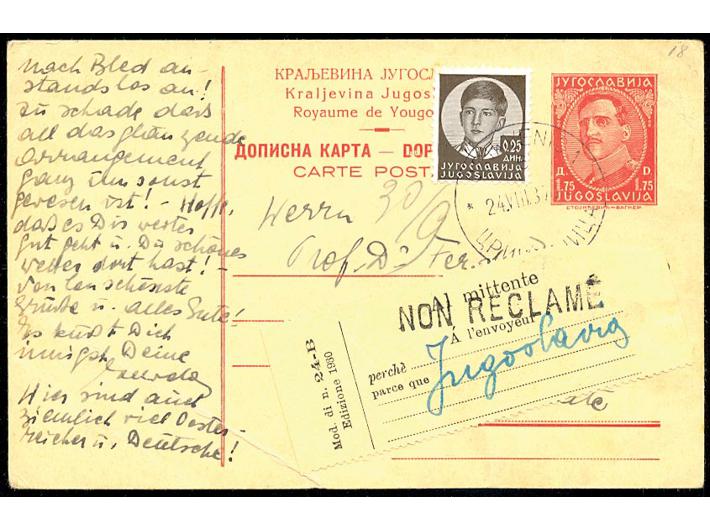 18
nach Bled an-
standslos an!
zu schade dass
all das glänzende
Arrangement
ganz umsonst
gewesen ist! - Hoffe,
daß es Dir weiter
gut geht u. Du schönes
Wetter dort hast! -
Von den schönste
Grüße u. alles Gute!
Es küßt Dich
innigst, Deine
Hier sind auch
ziemlich viel Oester-
reicher u. Deutsche!
КРАЉЕВИНА ЈУГОСЛ
Kraljevina Jugos
Royaume de Yougo
ДОПИСНА КАРТА — DOP
CARTE POST
0.25
ДИН.
ЈУГОСЛАВИЈА
JUGOSLAVIJA
ЈУГОСЛАВИЈА
Д. D.
1.75 1.75
JUGOSLAVIJA
24.VIII.37
Herrn
Prof. Dr. Fer
Al mittente
NON RECLAMÉ
À l'envoyeur
perchè
parce que
Jugoslavia
Mod. di n. 24-B
Edizione 1930